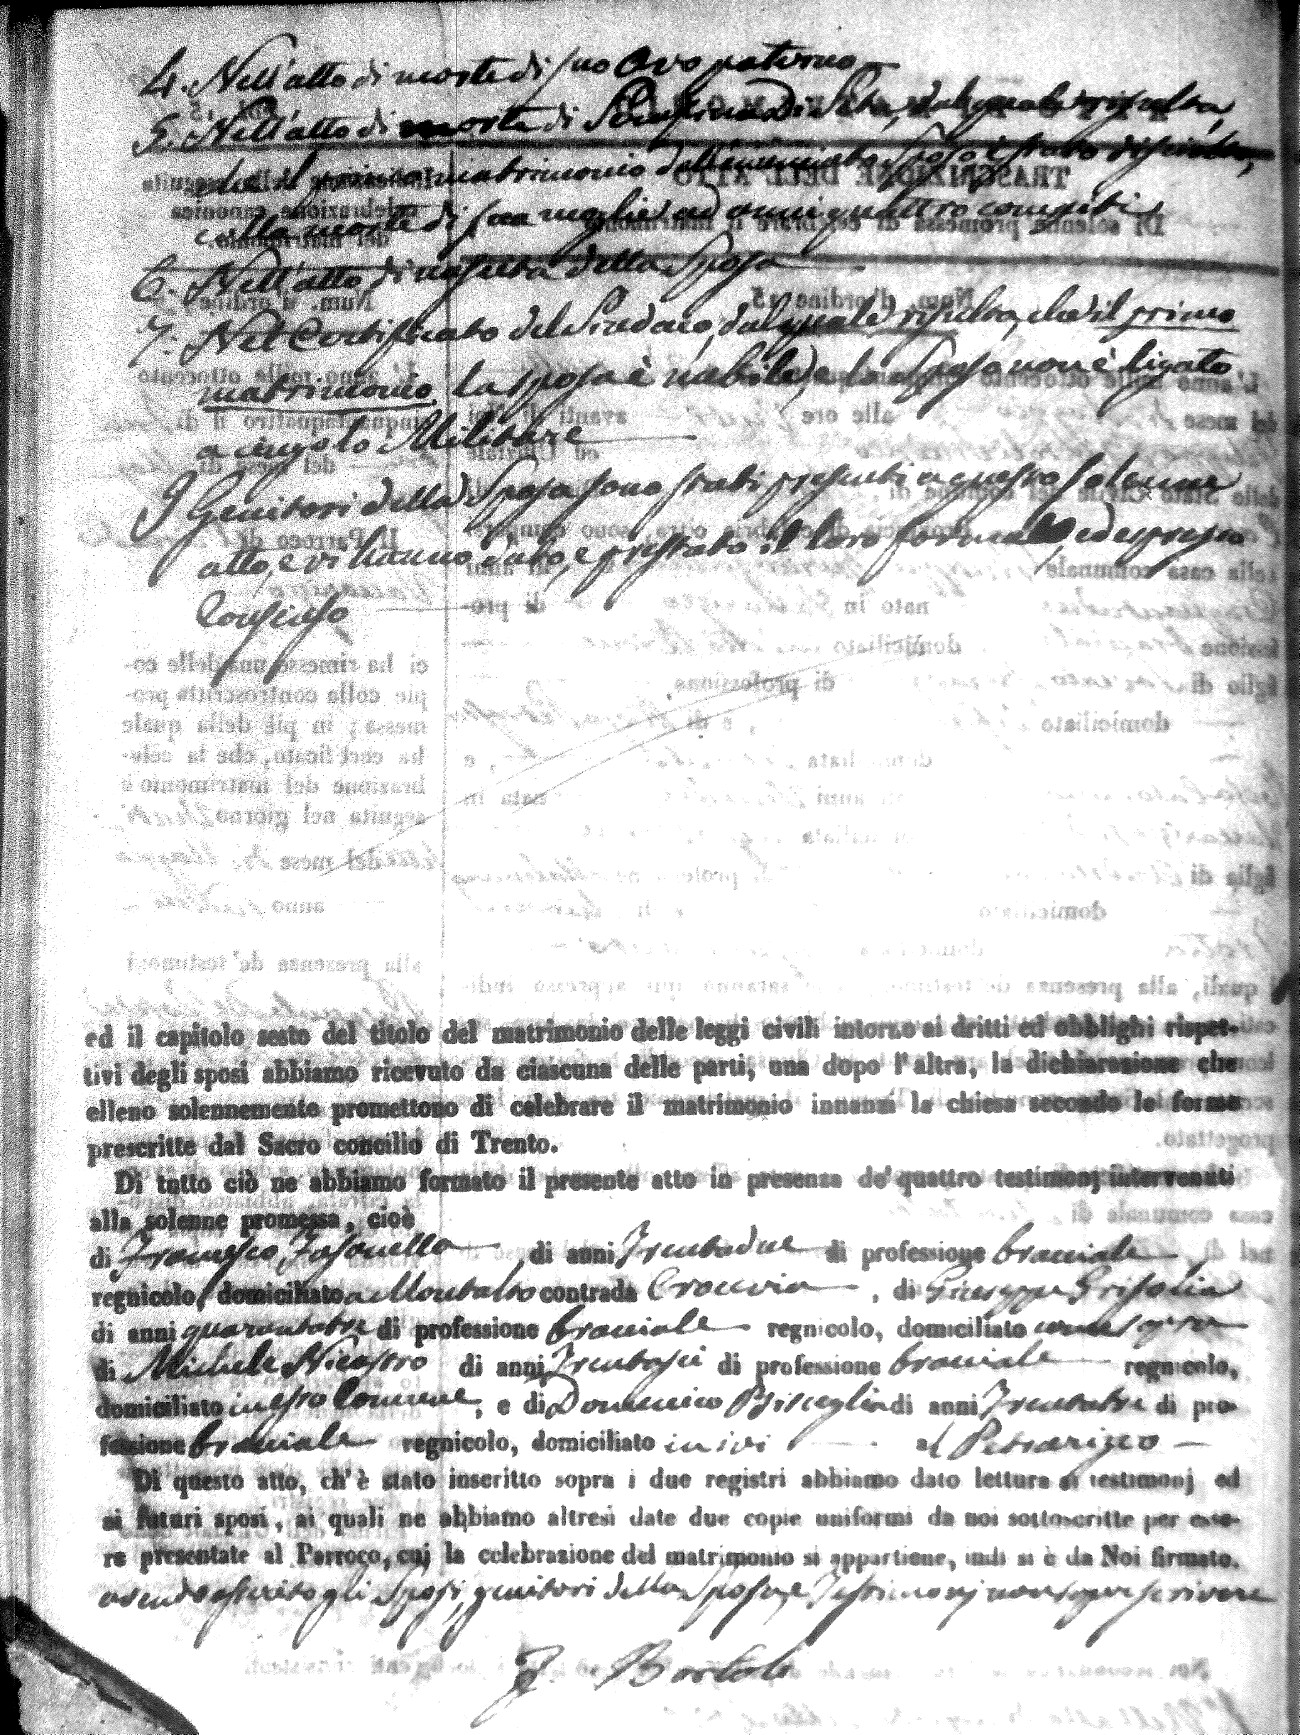 4. Nell'atto di morte di suo Avo paterno
5. Nell'atto di morte di Serafina di Seta, dal quale risulta,
che il primo matrimonio dell'enunciato Sposo è stato disciolto,
colla morte di sua moglie ad anni quattro compiti
6. Nell'atto di nascita della Sposa
7. Nel Certificato del Sindaco, dal quale risulta, che il primo
matrimonio, la sposa è nubile, e lo Sposo non è ligato
a cingolo Militare
I Genitori della Sposa sono stati presenti a questo solenne
atto, e vi hanno dato, e prestato il loro formale, ed espresso
Consenso
ed il capitolo sesto del titolo del matrimonio delle leggi civili intorno ai dritti ed obblighi rispet-
tivi degli sposi abbiamo ricevuto da ciascuna delle parti, una dopo l'altra, la dichiarazione che
elleno solennemente promettono di celebrare il matrimonio innanzi la chiesa secondo le forme
prescritte dal Sacro concilio di Trento.
Di tutto ciò ne abbiamo formato il presente atto in presenza de' quattro testimonj intervenuti
alla solenne promessa, cioè
di Francesco Fasanella di anni Trentadue di professione bracciale
regnicolo, domiciliato a Montalto contrada Crouvia, di Giuseppe Grisolia
di anni quarantatre di professione bracciale regnicolo, domiciliato come sopra
di Michele Nicastro di anni Trentasei di professione bracciale regnicolo,
domiciliato in esso Comune, e di Domenico Bisceglia di anni Trentatre di pro-
fessione bracciale regnicolo, domiciliato in ivi al Petrarizzo
Di questo atto, ch'è stato inscritto sopra i due registri abbiamo dato lettura ai testimonj ed
ai futuri sposi, ai quali ne abbiamo altresì date due copie uniformi da noi sottoscritte per esse-
re presentate al Parroco, cui la celebrazione del matrimonio si appartiene, indi si è da Noi firmato.
avendo asserito gli Sposi, genitori della Sposa, e Testimonj non saper scrivere
F. Bartoli